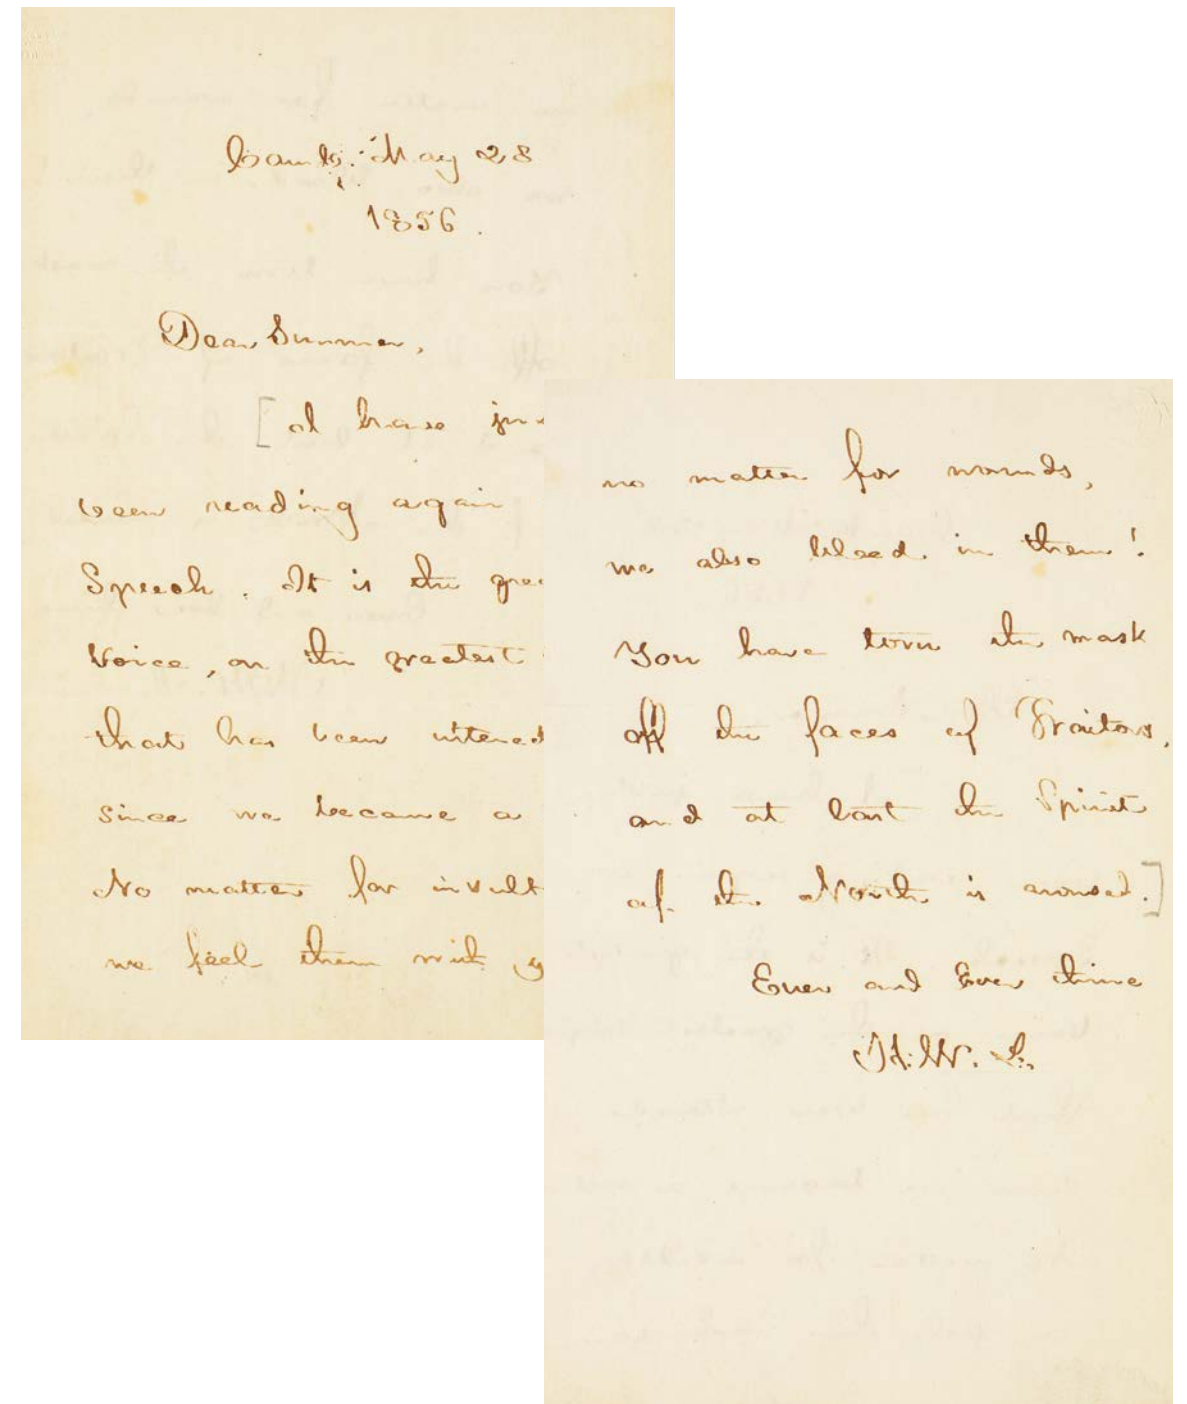 Camb. May 28
1856.
Dear Sumner,
[I have
been reading again
Speech. It is the
Voice, on the greatest
that has been uttered
since we became a
No matter for insult
we feel them with
no matter for wounds,
we also bleed in them!
You have torn the mask
off the faces of Traitors,
and at last the Spirit
of the North is aroused.]
Ever and Ever thine
H.W. L.